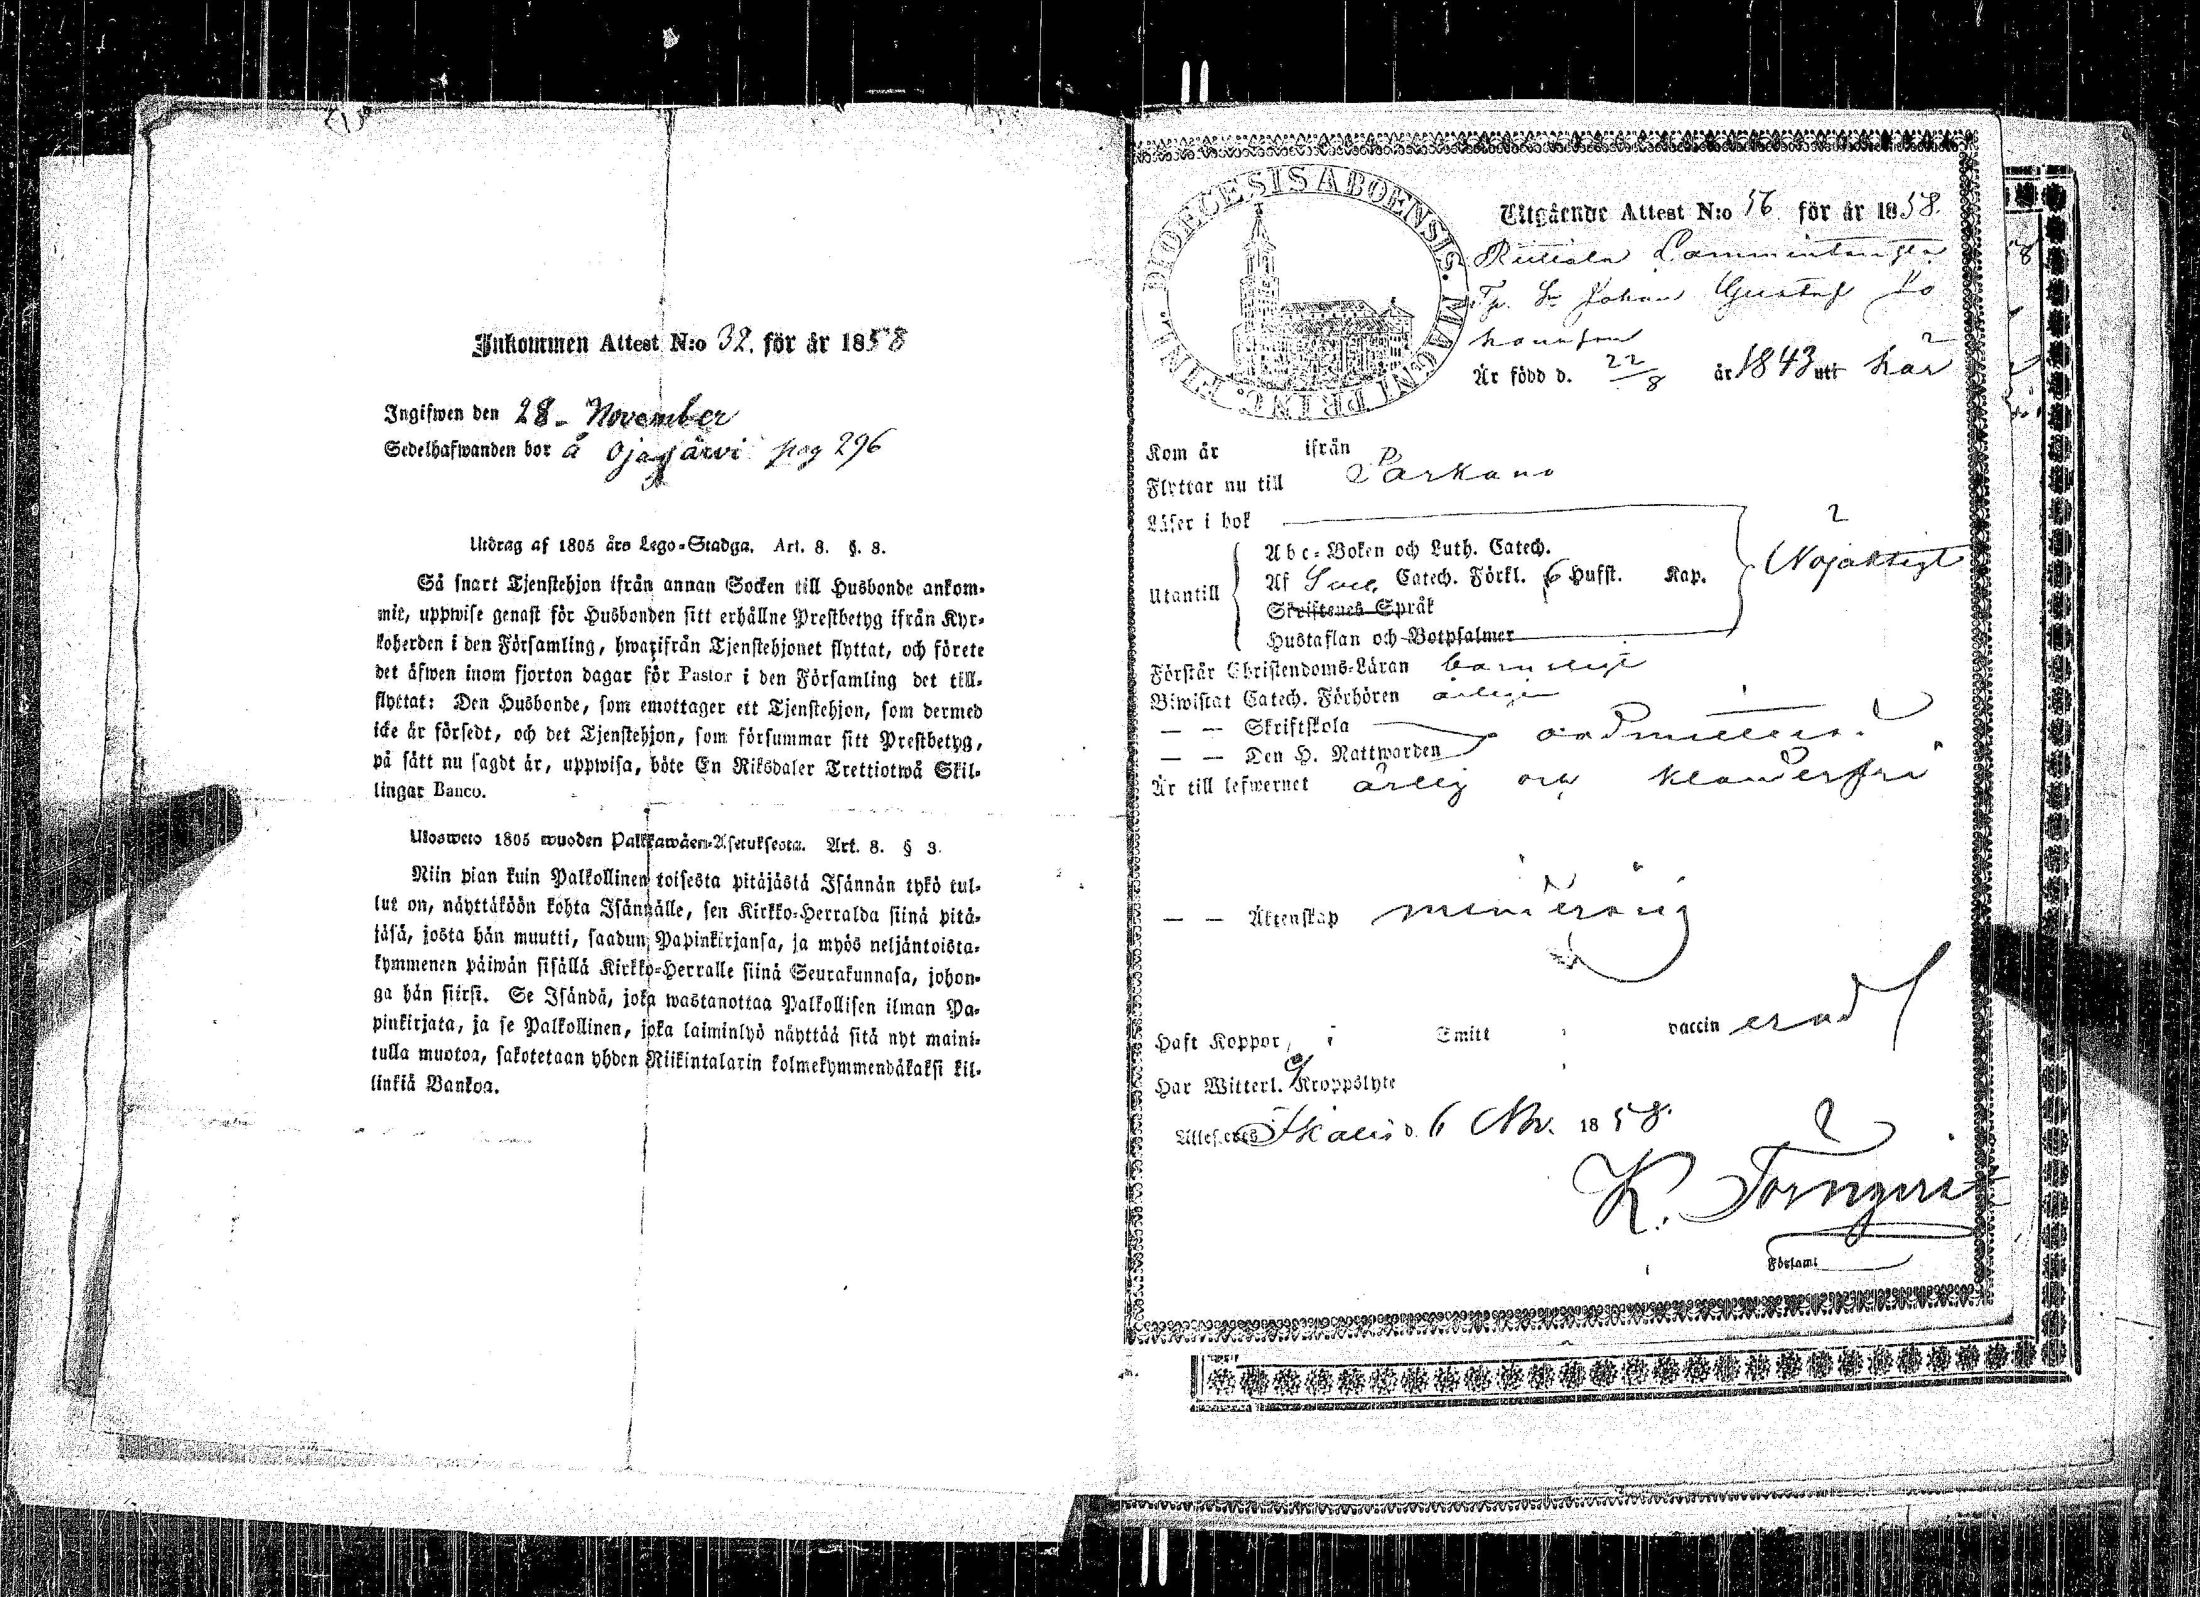 Inkommen Attest N:o 32. för år 1858
Ingifwen den 28 - November
Sedelhafwanden bor å Ojajärvi pag 296
Utdrag af 1805 års Lego-Stadga. Art. 8. §. 3.
Så snart Tjenstehjon ifrån annan Socken till Husbonde ankom-
mit, uppwise genast för Husbonden sitt erhållne Prestbetyg ifrån Kyr-
koherden i den Församling, hwarifrån Tjenstehjonet flyttat, och förete
det äfwen inom fjorton dagar för Pastor i den Församling det till-
flyttat: Den Husbonde, som emottager ett Tjenstehjon, som dermed
icke är försedt, och det Tjenstehjon, som försummar sitt Prestbetyg,
på sätt nu sagdt är, uppwisa, böte En Riksdaler Trettiotwå Skil-
lingar Banco.
Ulosweto 1805 wuoden Palkkawäen-Asetuksesta. Art. 8. § 3.
Niin pian kuin Palkollinen toisesta pitäjästä Isännän tykö tul-
lut on, näyttäköön kohta Isännälle, sen Kirkko-Herralda siinä pitä-
jäsä, josta hän muutti, saadun Papinkirjansa, ja myös neljäntoista-
kymmenen päiwän sisällä Kirkko-Herralle siinä Seurakunnasa, johon-
ga hän siirsi. Se Isändä, joka wastanottaa Palkollisen ilman Pa-
pinkirjata, ja se Palkollinen, joka laiminlyö näyttää sitä nyt maini-
tulla muotoa, sakotetaan yhden Riikintalarin kolmekymmendäkaksi kil-
linkiä Bankoa.
DIOECESIS ABOENSIS. MAGNI PRINC. FINL.
Utgående Attest N:o 56 för år 1858.
Johan Gustaf Jo
hansson
Är född d. 22/8 år 1843 uti här
Kom år ifrån
Flyttar nu till Parkano
Läser i bok
Abc-Boken och Luth. Catech.
Utantill Af Sveb. Catech. Förkl. 6 Hufst. Kap. Nöjaktigt
Skriftenes Språk
Hustaflan och Botpsalmer
Förstår Christendoms-Läran barnsligt
Biwistat Catech. Förhören årligen
— — Skriftskola
— — Den H. Nattwarden oadmitterad
Är till lefwernet ärlig och klanderfri
— — Äktenskap minderårig
Haft Koppor, Smitt vaccin erad
Har Witterl. Kroppslyte
Attesteras Ikalis d. 6 Nov. 1858.
K. Törnqvist
Församl